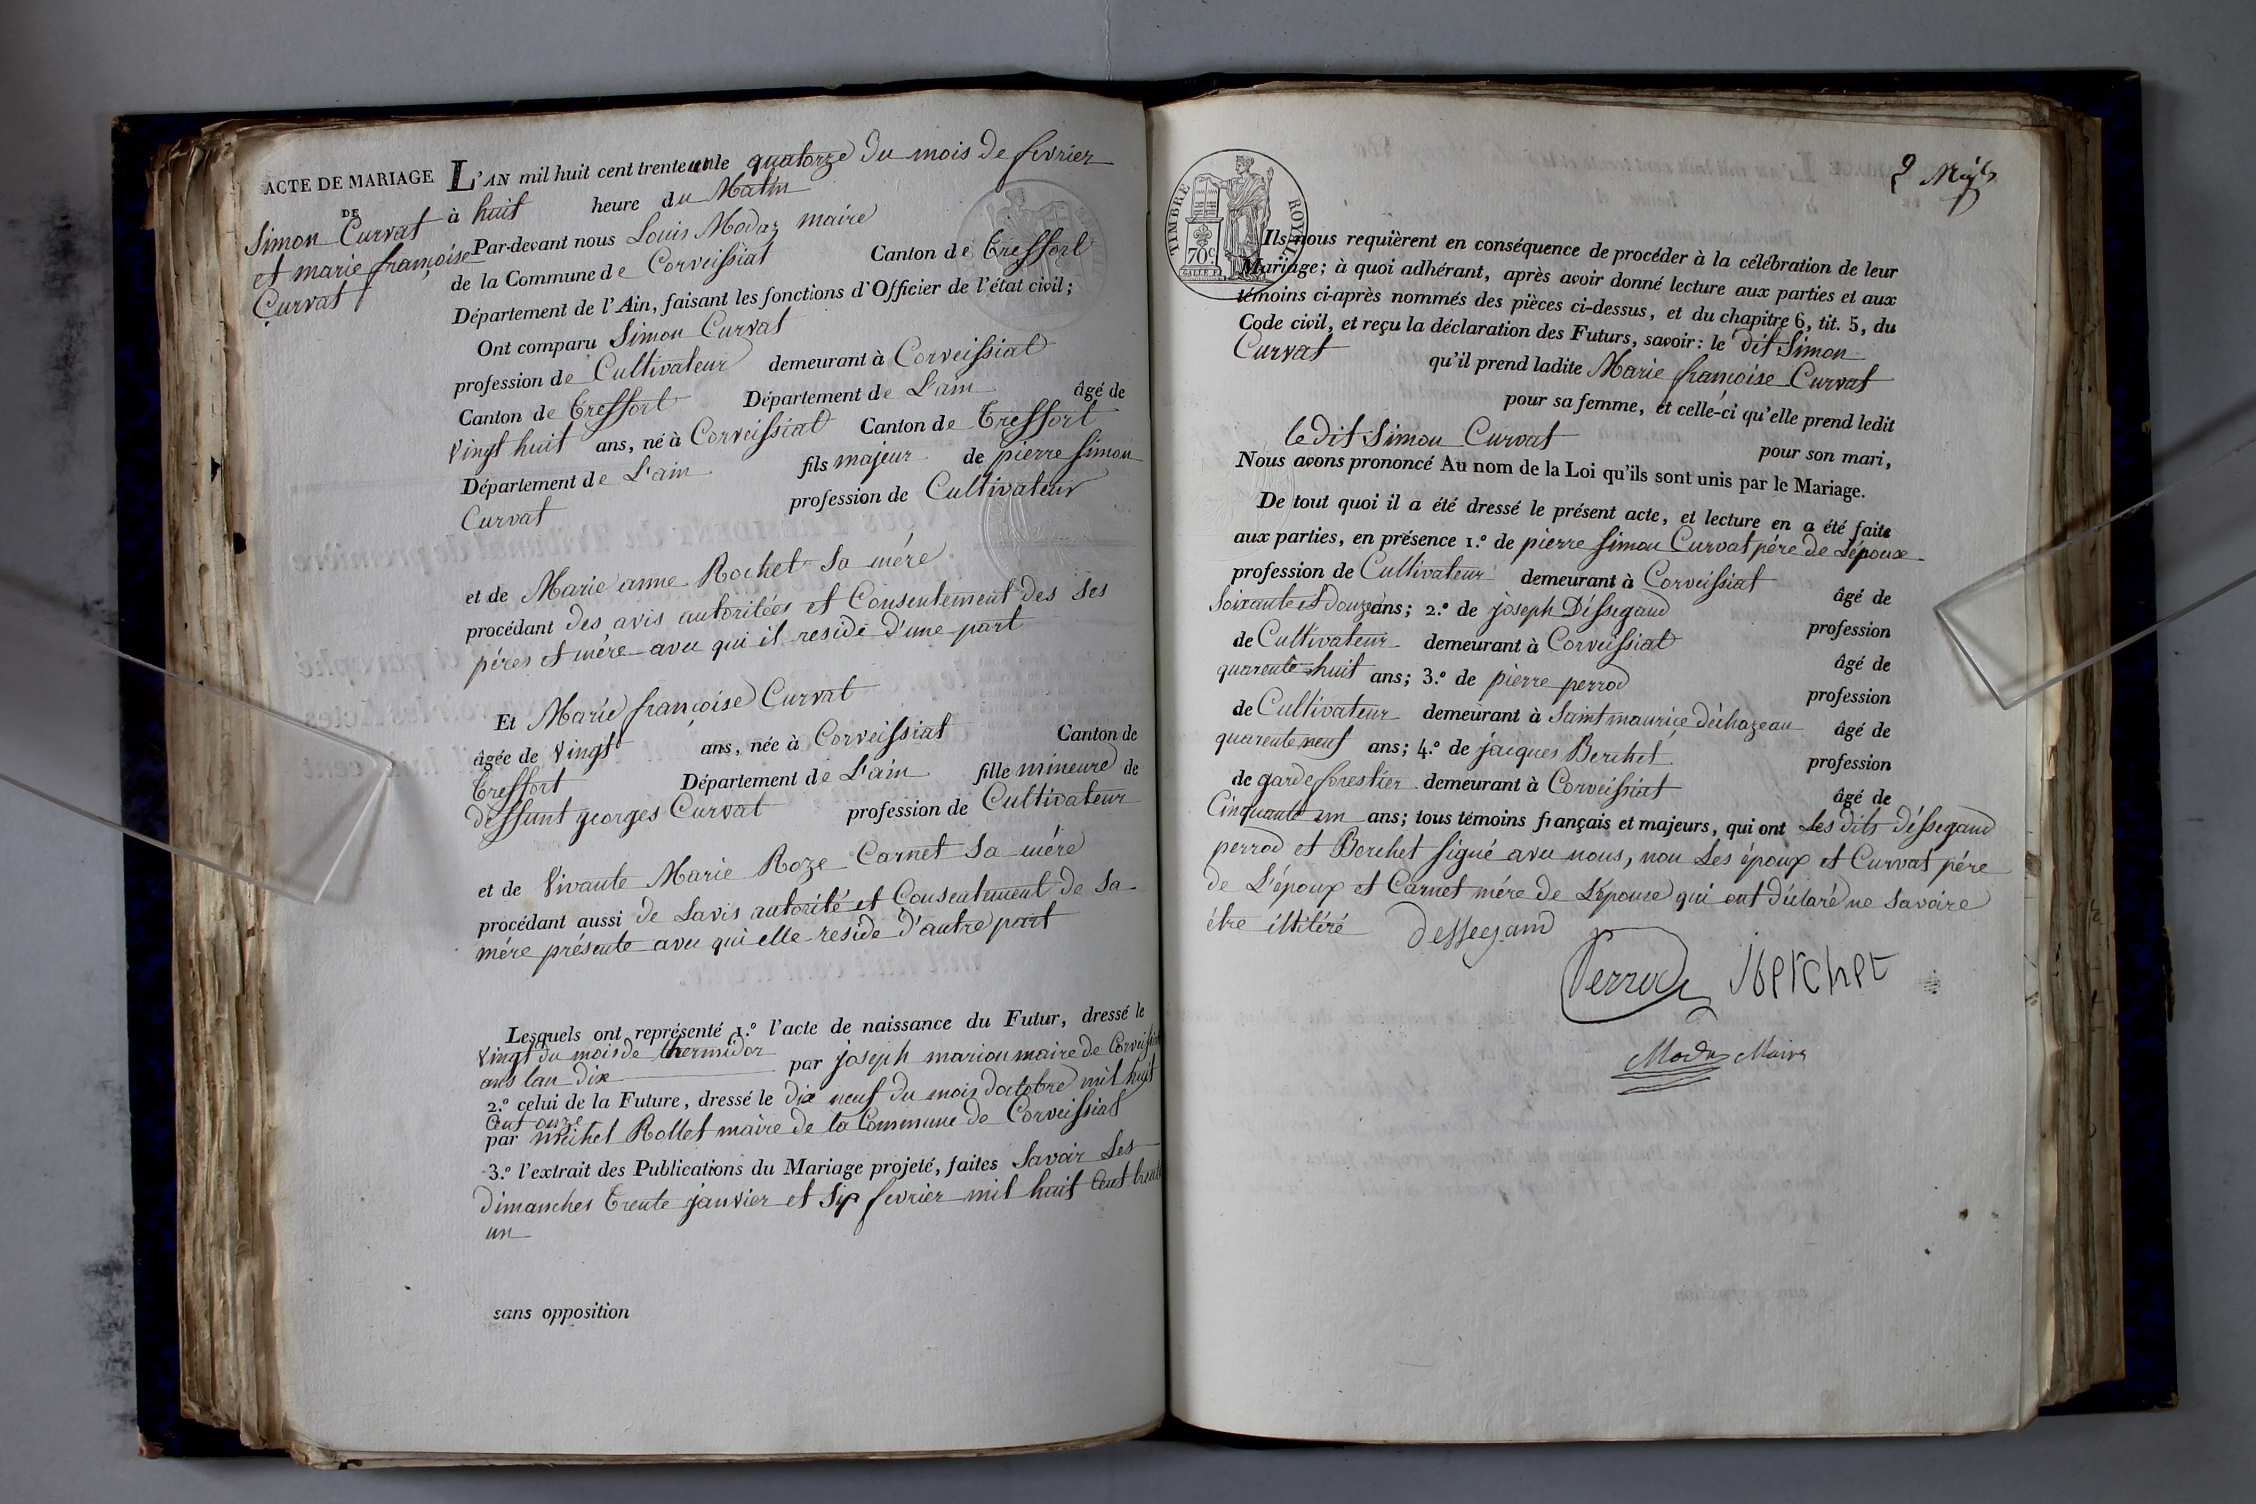 ACTE DE MARIAGE
DE
Simon Curvat
et marie françoise
Curvat
L'AN mil huit cent trente un le quatorze du mois de fevrier
à huit heure du Matin
Par-devant nous Louis Modaz maire
de la Commune de Corveissiat Canton de Treffort
Département de l'Ain, faisant les fonctions d'Officier de l'état civil;
Ont comparu Simon Curvat
profession de Cultivateur demeurant à Corveissiat
Canton de Treffort Département de L'ain âgé de
vingt huit ans, né à Corveissiat Canton de Treffort
Département de L'ain fils majeur de pierre simon
Curvat profession de Cultivateur
et de Marie anne Rochet sa mére
procédant des avis autoritées et Consentement des ses
péres et mére avec qui il reside d'une part
Et Marie françoise Curvat
âgée de vingt ans, née à Corveissiat Canton de
Treffort Département de L'ain fille mineure de
deffunt georges Curvat profession de Cultivateur
et de vivante Marie Roze Carnet sa mére
procédant aussi de Lavis autorité et Consentement de sa
mére présente avec qui elle reside d'autre part
Lesquels ont représenté 1.º l'acte de naissance du Futur, dressé le
vingt du mois de thermidor par joseph marion maire de Corveissiat
ans lan dix
2.º celui de la Future, dressé le dix neuf du mois doctobre mil huit
Cent onze
par michel Rollet maire de la Commune de Corveissiat
3.º l'extrait des Publications du Mariage projeté, faites savoir Les
dimanches trente janvier et six fevrier mil huit Cent trente
un
sans opposition
TIMBRE ROYAL
70c
Ils nous requièrent en conséquence de procéder à la célébration de leur
Mariage; à quoi adhérant, après avoir donné lecture aux parties et aux
témoins ci-après nommés des pièces ci-dessus, et du chapitre 6, tit. 5, du
Code civil, et reçu la déclaration des Futurs, savoir: le dit Simon
Curvat qu'il prend ladite Marie françoise Curvat
pour sa femme, et celle-ci qu'elle prend ledit
le dit Simon Curvat pour son mari,
Nous avons prononcé Au nom de la Loi qu'ils sont unis par le Mariage.
De tout quoi il a été dressé le présent acte, et lecture en a été faite
aux parties, en présence 1.º de pierre simon Curvat pére de Lépoux
profession de Cultivateur demeurant à Corveissiat âgé de
soixante et douze ans; 2.º de joseph Déssegaud profession
de Cultivateur demeurant à Corveissiat âgé de
quarente huit ans; 3.º de pierre perrod profession
de Cultivateur demeurant à Saint maurice déchazeau âgé de
quarente neuf ans; 4.º de jacques Berchet profession
de garde forestier demeurant à Corveissiat âgé de
Cinquante un ans; tous témoins français et majeurs, qui ont Les dits déssegaud
perrod et Berchet signé avec nous, non Les époux et Curvat pére
de L'époux et Carnet mére de Lépouse qui ont déclaré ne savoire
étre illitéré
dessegaud
Perrod
Berchet
Modaz Maire